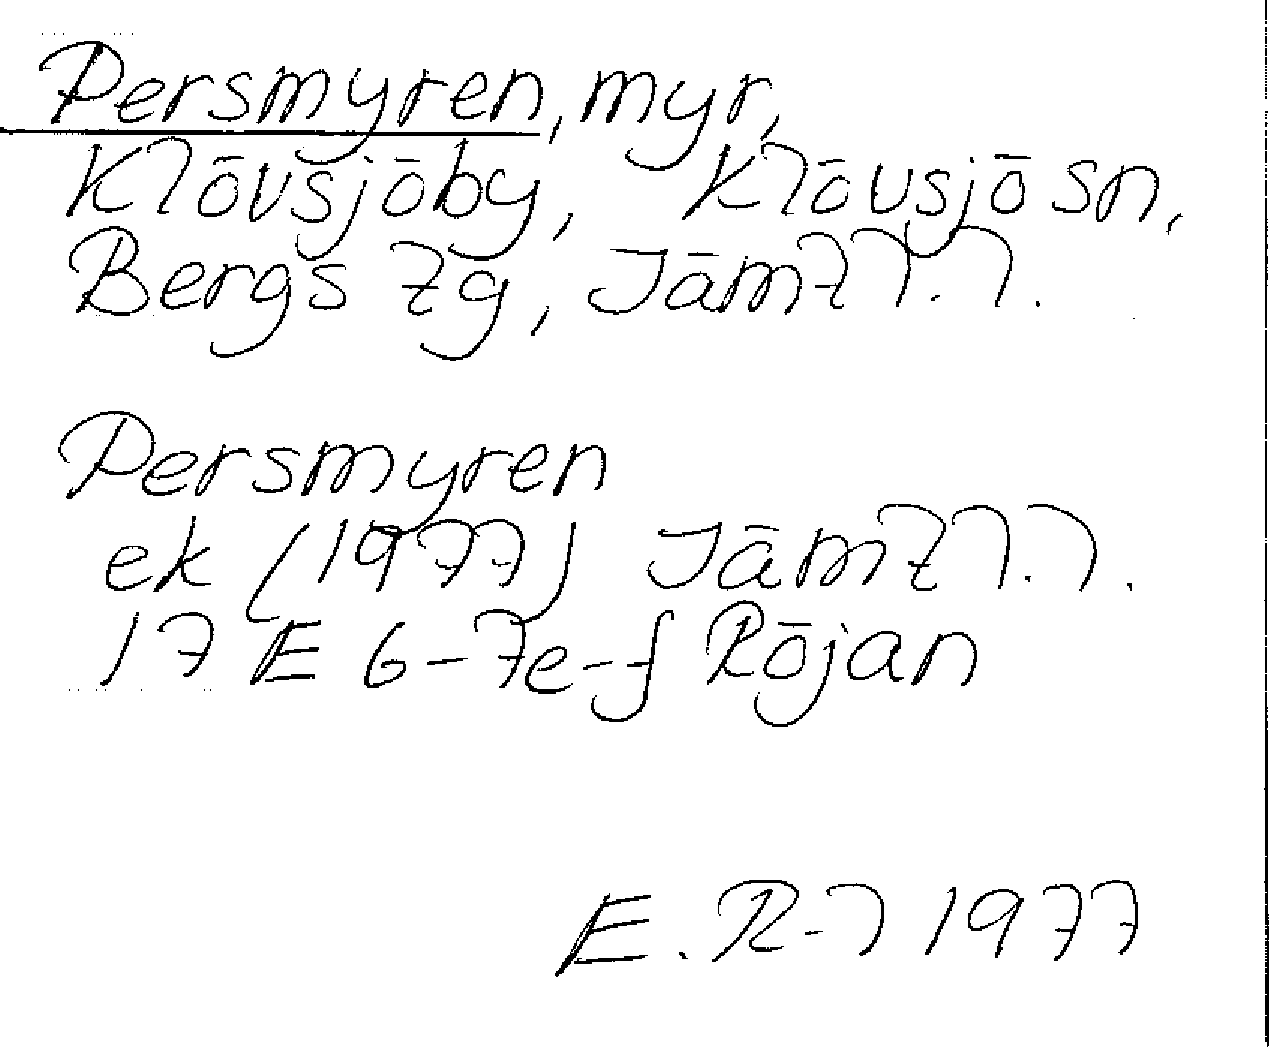 Persmyren, myr,
Klövsjöby, Klövsjö sn,
Bergs tg, Jämtl.l.
Persmyren
ek (1977) Jämtl.l.
17 E 6-7e-f Röjan
E. R-l 1977